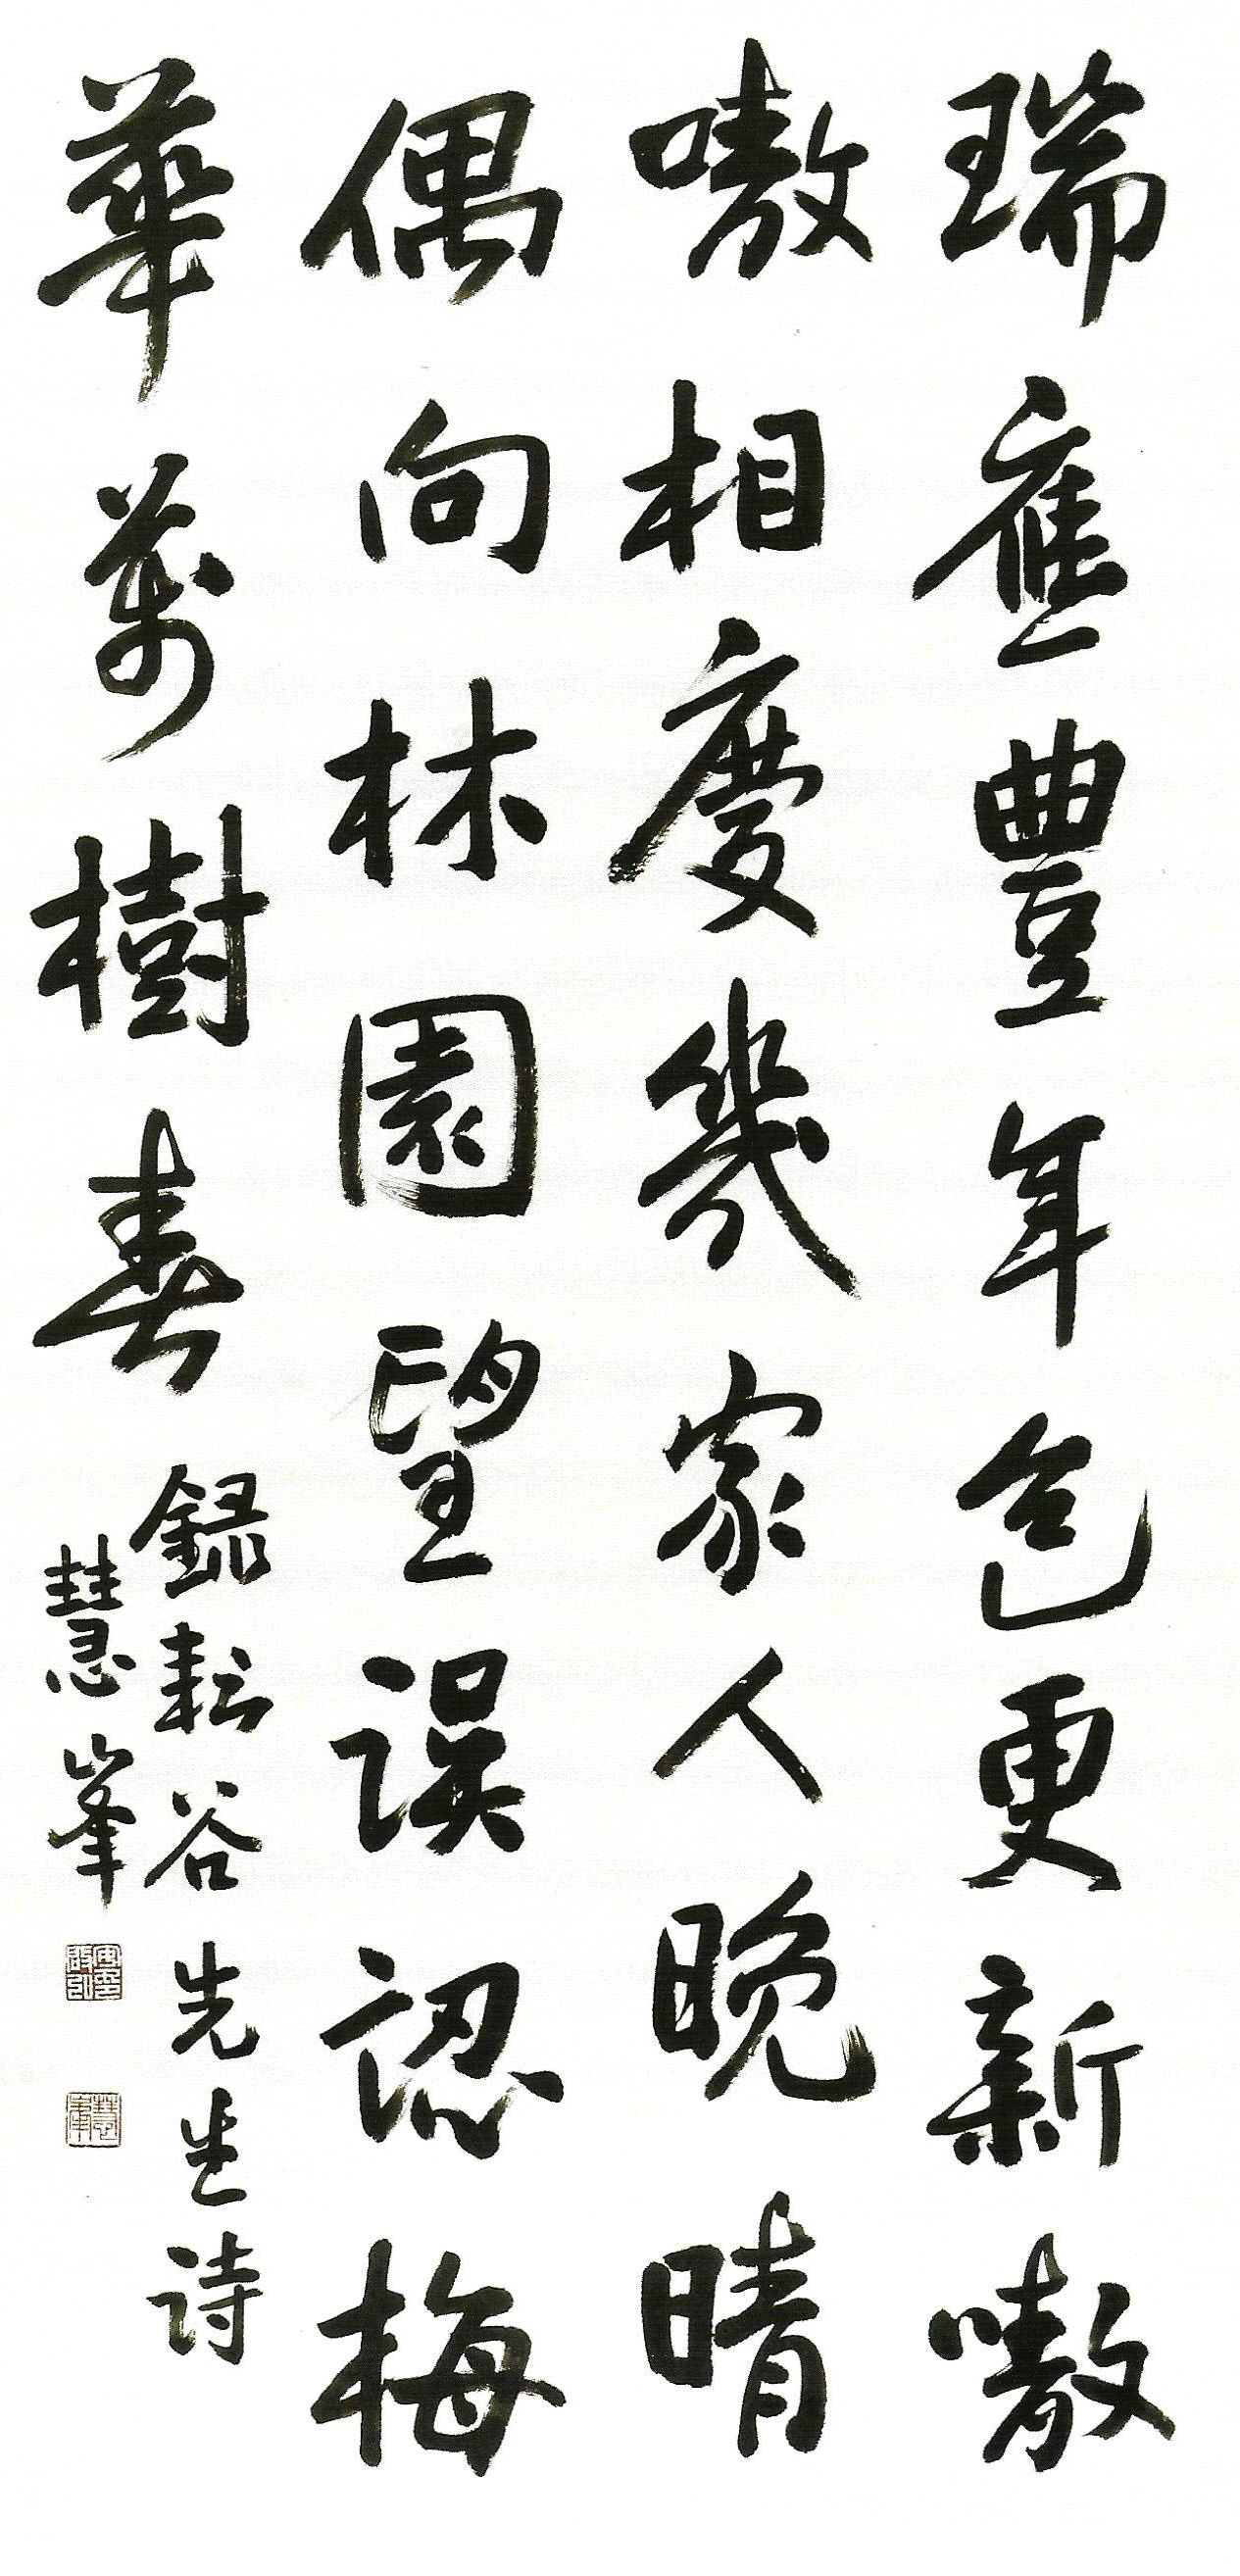 瑞應豊年色更新嗷
嗷相慶幾家人晚晴
偶向林園望誤認梅
華萬樹春
錄耘谷先生詩
慧峯